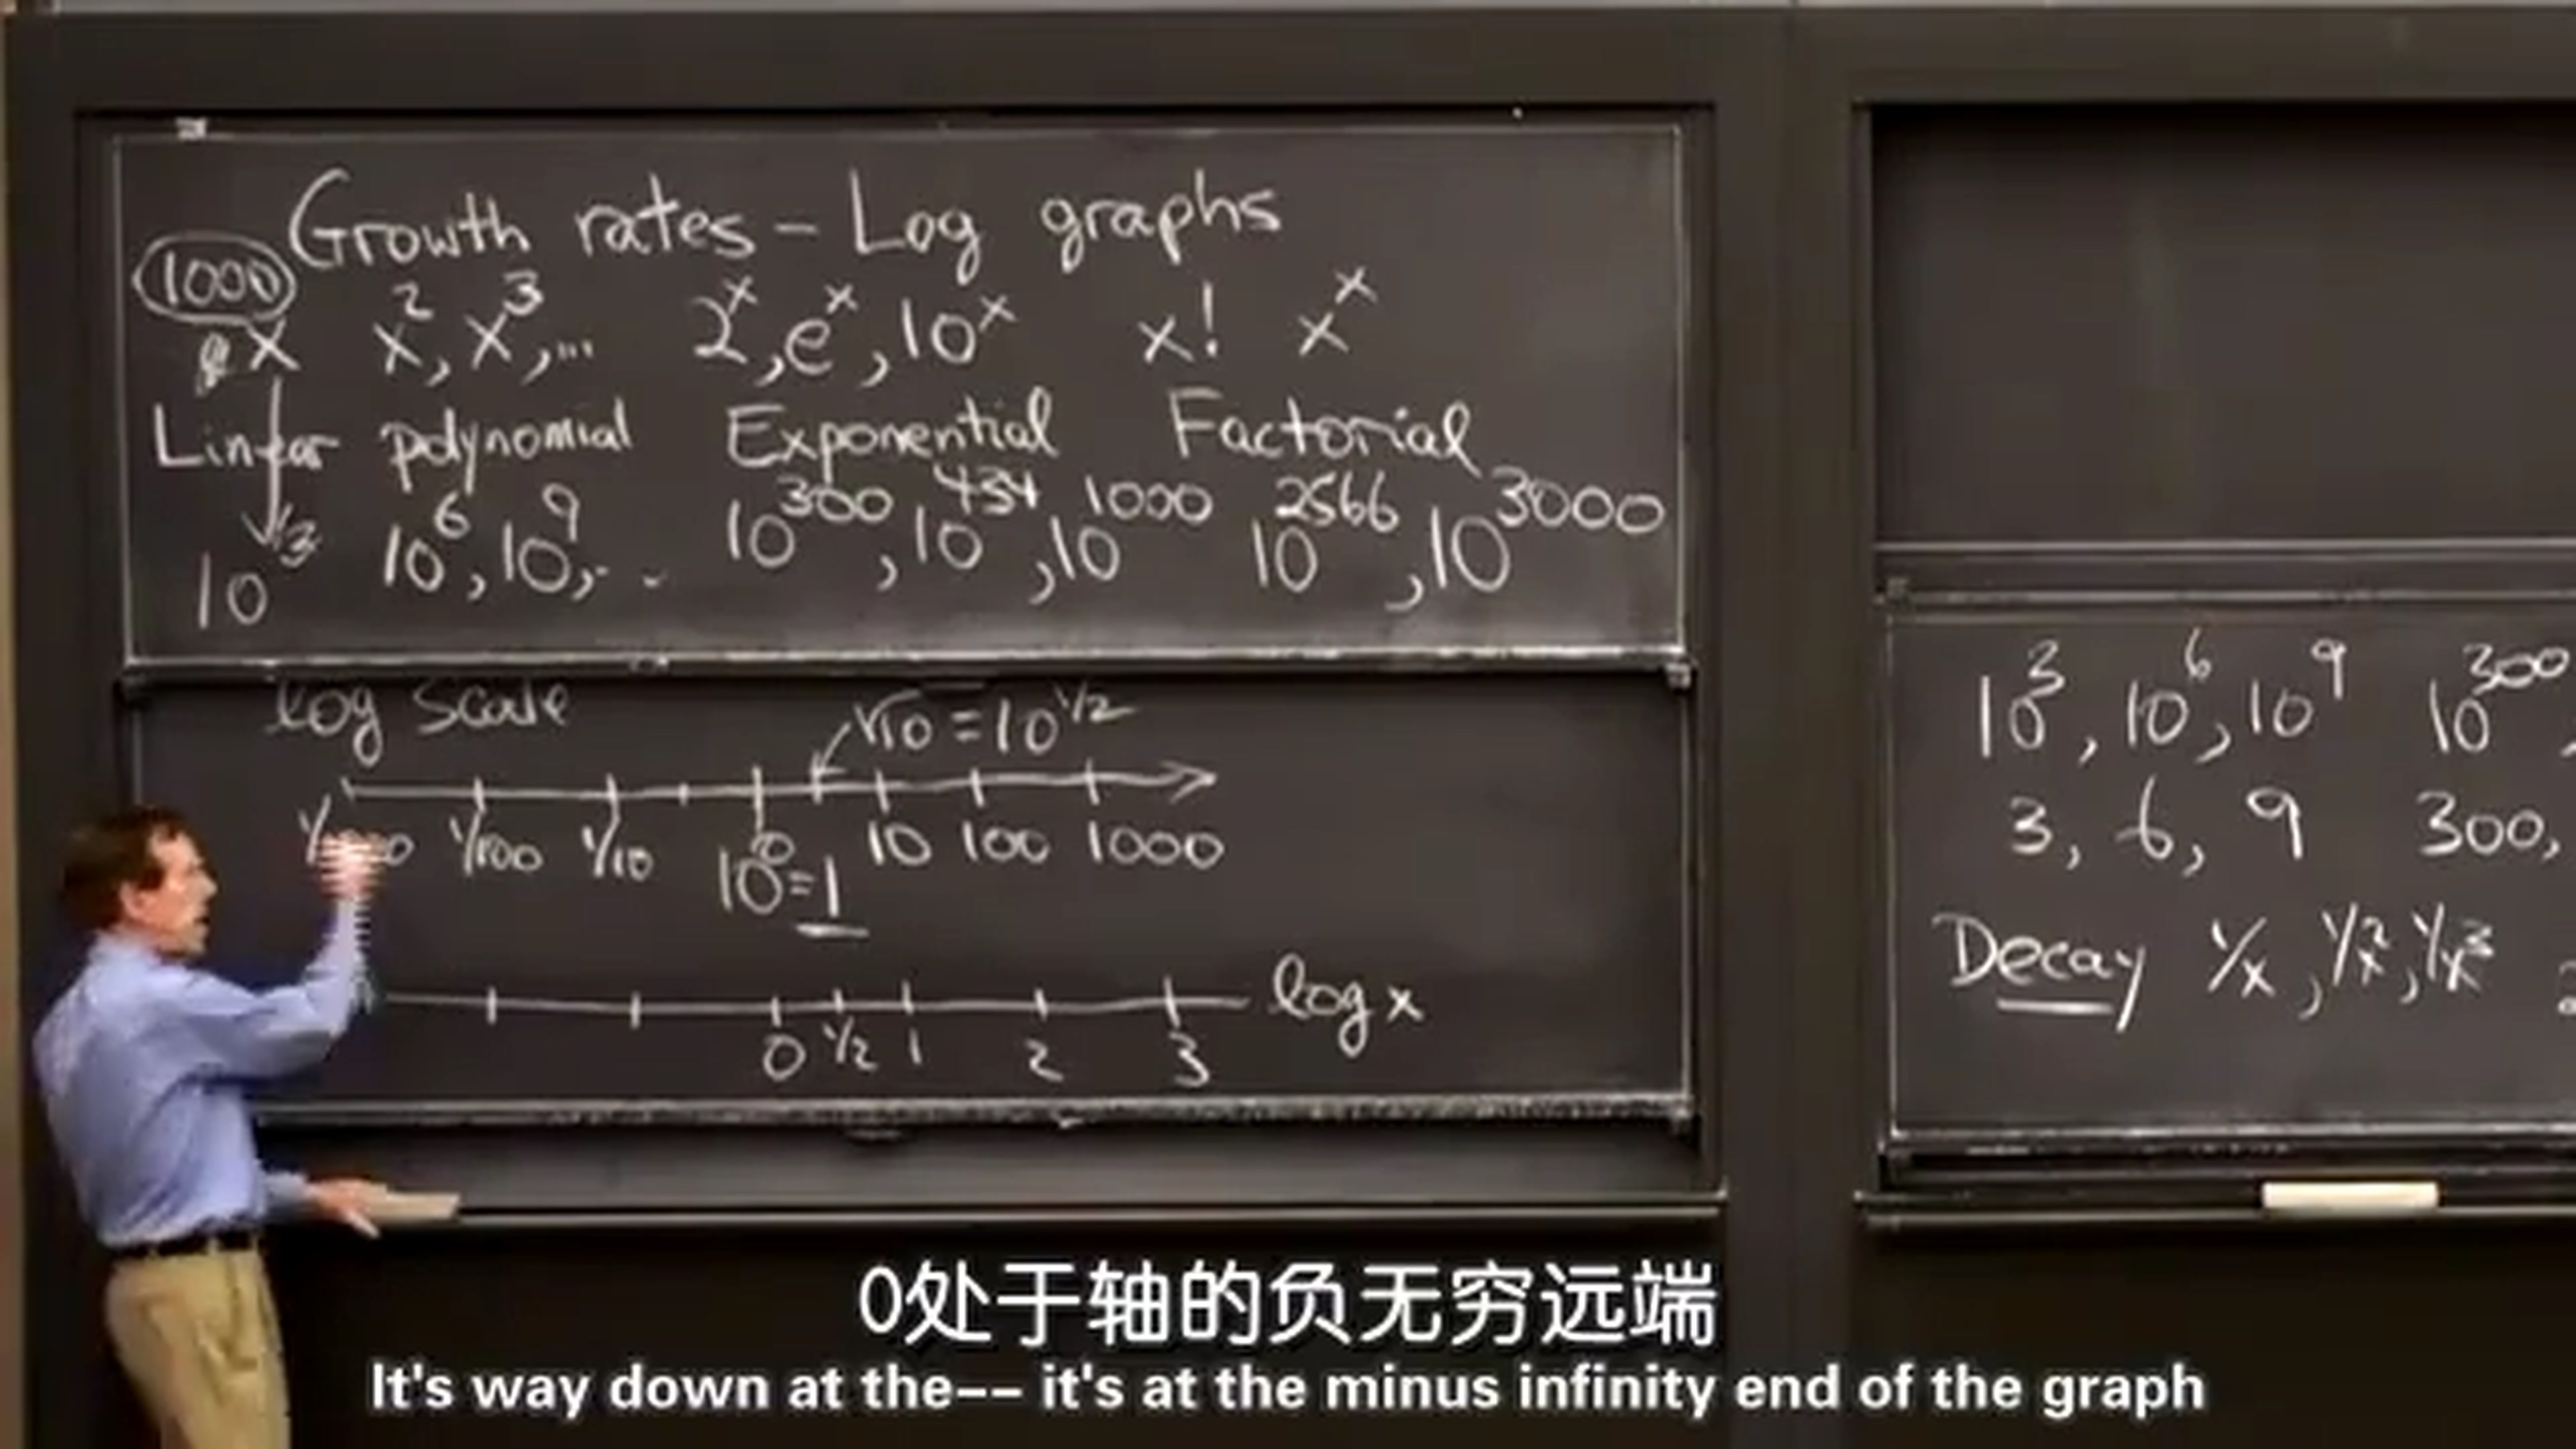 Growth rates - Log graphs
1000
x x², x³, ... 2ˣ, eˣ, 10ˣ x! xˣ
Linear polynomial Exponential Factorial
10³ 10⁶, 10⁹, .. 10³⁰⁰, 10⁴³⁴, 10¹⁰⁰⁰ 10²⁵⁶⁶, 10³⁰⁰⁰
log scale
√10 = 10^1/2
1/100 1/10 10⁰=1 10 100 1000
log x
0 1/2 1 2 3
10³, 10⁶, 10⁹ 10³⁰⁰,
3, 6, 9 300,
Decay 1/x, 1/x², 1/x³
0处于轴的负无穷远端
It's way down at the-- it's at the minus infinity end of the graph